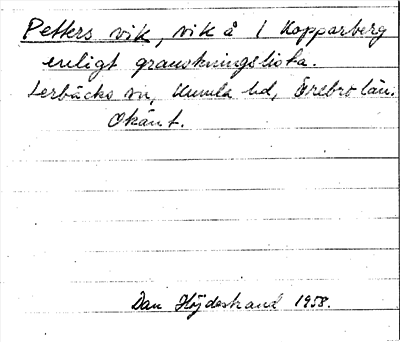 Petters vik, vik å 1 Kopparberg
enligt granskningslista.
Lerbäcks sn, Kumla hd, Örebro län.
Okänt.
Dan Höjdestrand 1958.